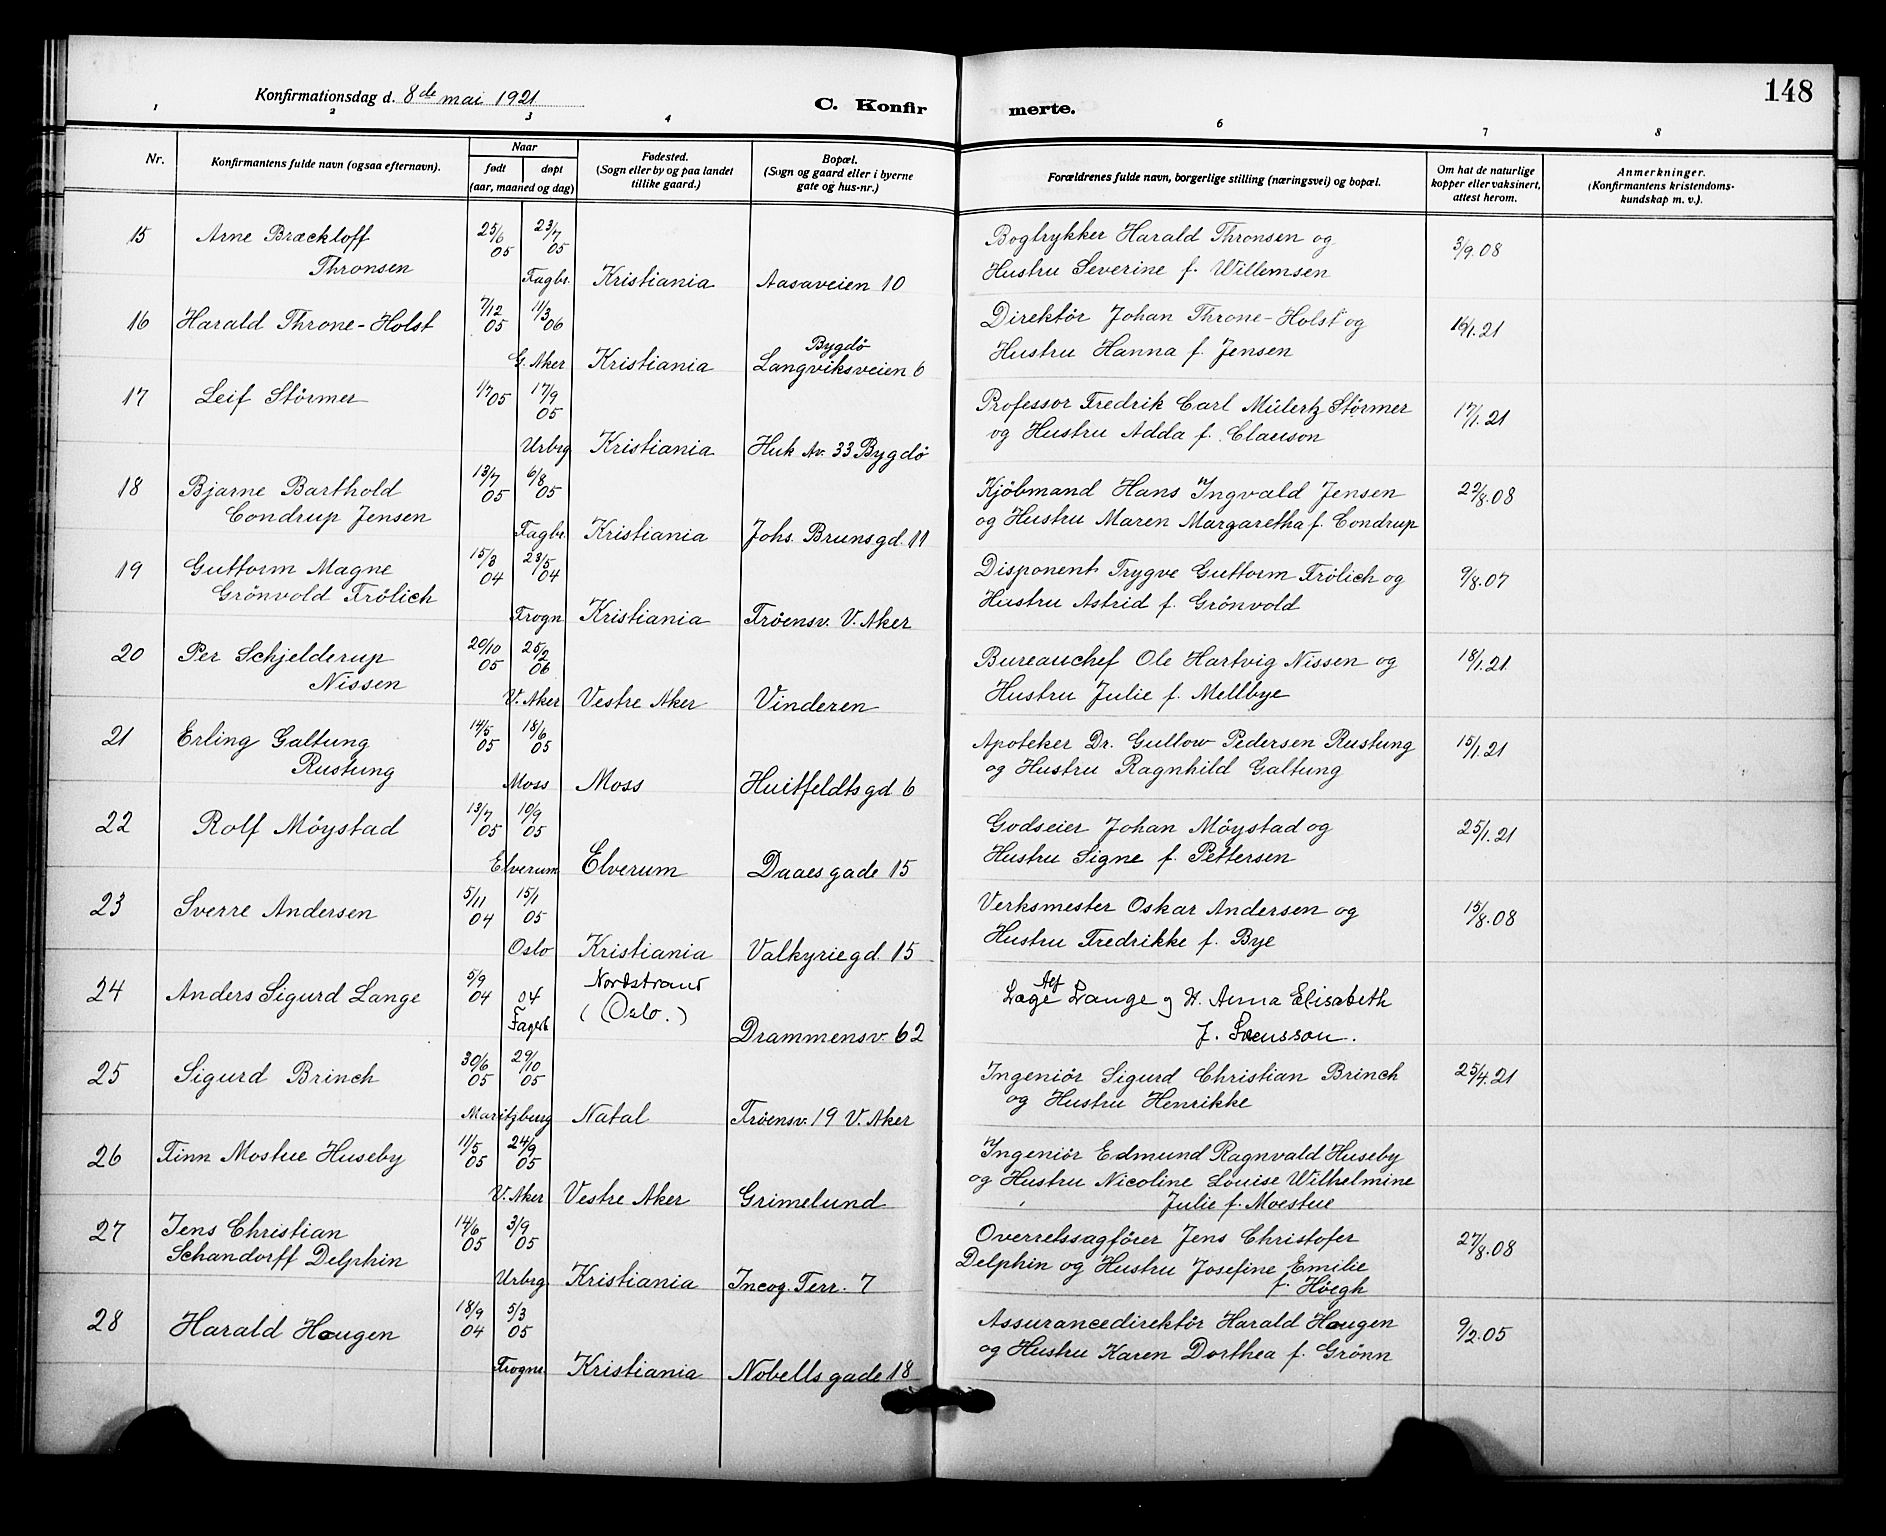 148
Konfirmationsdag d. 8de mai 1921
C. Konfir merte.
1 2 3 4 6 7 8
Nr.
Konfirmantens fulde navn (ogsaa efternavn).
Naar
født døpt
(aar, maaned og dag)
Fødested.
(Sogn eller by og paa landet
tillike gaard.)
Bopæl.
(Sogn og gaard eller i byerne
gate og hus-nr.)
Forældrenes fulde navn, borgerlige stilling (næringsvei) og bopæl.
Om hat de naturlige
kopper eller vaksinert,
attest herom.
Anmerkninger.
(Konfirmantens kristendoms-
kundskap m. v.)
15 Arne Bræckloff 25/6 05 23/7 05 Bogtrykker Harald Thronsen og 3/9.08
Thronsen Fagbr. Kristiania Aasaveien 10 Hustru Severine f. Willemsen
16 Harald Throne-Holst 7/12 05 11/3 06 Direktör Johan Throne-Holst og 16/1.21
G. Aker Kristiania Bygdö Langviksveien 6 Hustru Hanna f. Jensen
17 Leif Störmer 1/7 05 17/9 05 Professor Fredrik Carl Mülertz Störmer 17/1.21
Urbrg Kristiania Huk Av. 33 Bygdö og Hustru Adda f. Clauson
18 Bjarne Barthold 13/7 05 6/8 05 Kjöbmand Hans Ingvald Jensen 22/8.08
Condrup Jensen Fagbr. Kristiania Johs. Brunsgd. 11 og Hustru Maren Margaretha f. Condrup
19 Guttorm Magne 15/3 04 23/5 04 Disponent Trygve Guttorm Frölich og 9/8.07
Grönvold Frölich Frogn. Kristiania Fröensv. V. Aker Hustru Astrid f. Grönvold
20 Per Schjelderup 20/10 05 25/2 06 Bureauchef Ole Hartvig Nissen og 18/1.21
Nissen V. Aker Vestre Aker Vinderen Hustru Julie f. Mellbye
21 Erling Galtung 14/5 05 18/6 05 Apoteker Dr. Gullow Pedersen Rustung 15/1.21
Rustung Moss Moss Huitfeldtsgd 6 og Hustru Ragnhild Galtung
22 Rolf Möystad 13/7 05 10/9 05 Godseier Johan Möystad og 25/1.21
Elverum Elverum Daaes gade 15 Hustru Signe f. Pettersen
23 Sverre Andersen 5/11 04 15/1 05 Verksmester Oskar Andersen og 15/8.08
Oslo Kristiania Valkyriegd. 15 Hustru Fredrikke f. Bye
24 Anders Sigurd Lange 5/9 04 04 Nordstrand Læge Alf Lange og H. Anna Elisabeth
Fagerb (Oslo.) Drammensv. 62 f. Svensson.
25 Sigurd Brinch 30/6 05 29/10 05 Ingeniör Sigurd Christian Brinch 25/4.21
Maritzburg Natal Fröensv. 19 V. Aker og Hustru Henrikke
26 Finn Mostue Huseby 11/5 05 24/9 05 Ingeniör Edmund Ragnvald Huseby
V. Aker Vestre Aker Grimelund og Hustru Nicoline Louise Wilhelmine
Julie f. Moestue
27 Jens Christian 14/6 05 3/9 05 Overretssagförer Jens Christofer 27/8.08
Schandorff Delphin Delphin og Hustru Josefine Emilie
Urbrg Kristiania Incog. Terr. 7 f. Höegh
28 Harald Haugen 18/9 04 5/3 05 Assurancedirektör Harald Haugen 9/2.05
Frogne Kristiania Nobells gade 18 og Hustru Karen Dorthea f. Grönn